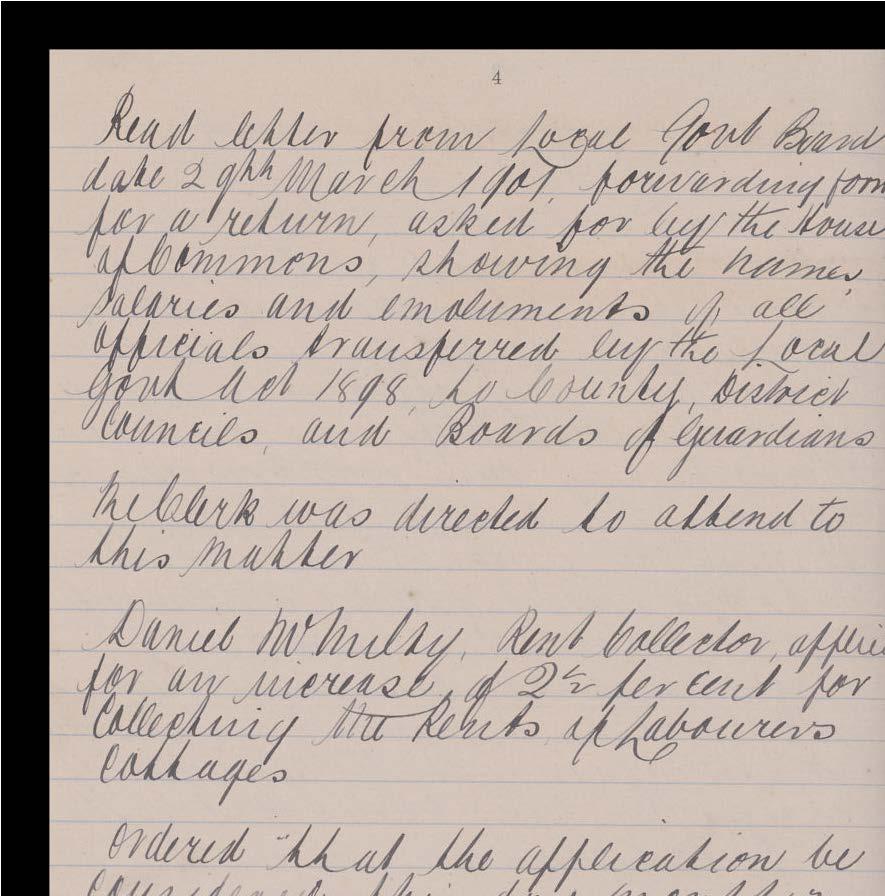 4
Read letter from Local Govt Board
date 29th March 1901, forwarding form
for a return, asked for by the House
of Commons, showing the names,
salaries and emoluments of all
officials transferred by the Local
Govt Act 1898, to County, District
Councils, and Boards of Guardians
The Clerk was directed to attend to
this matter
Daniel Rent Collector,
for an increase of 2½ per cent for
Collecting the Rents of Labourers
Cottages
Ordered that the application be
considered this day